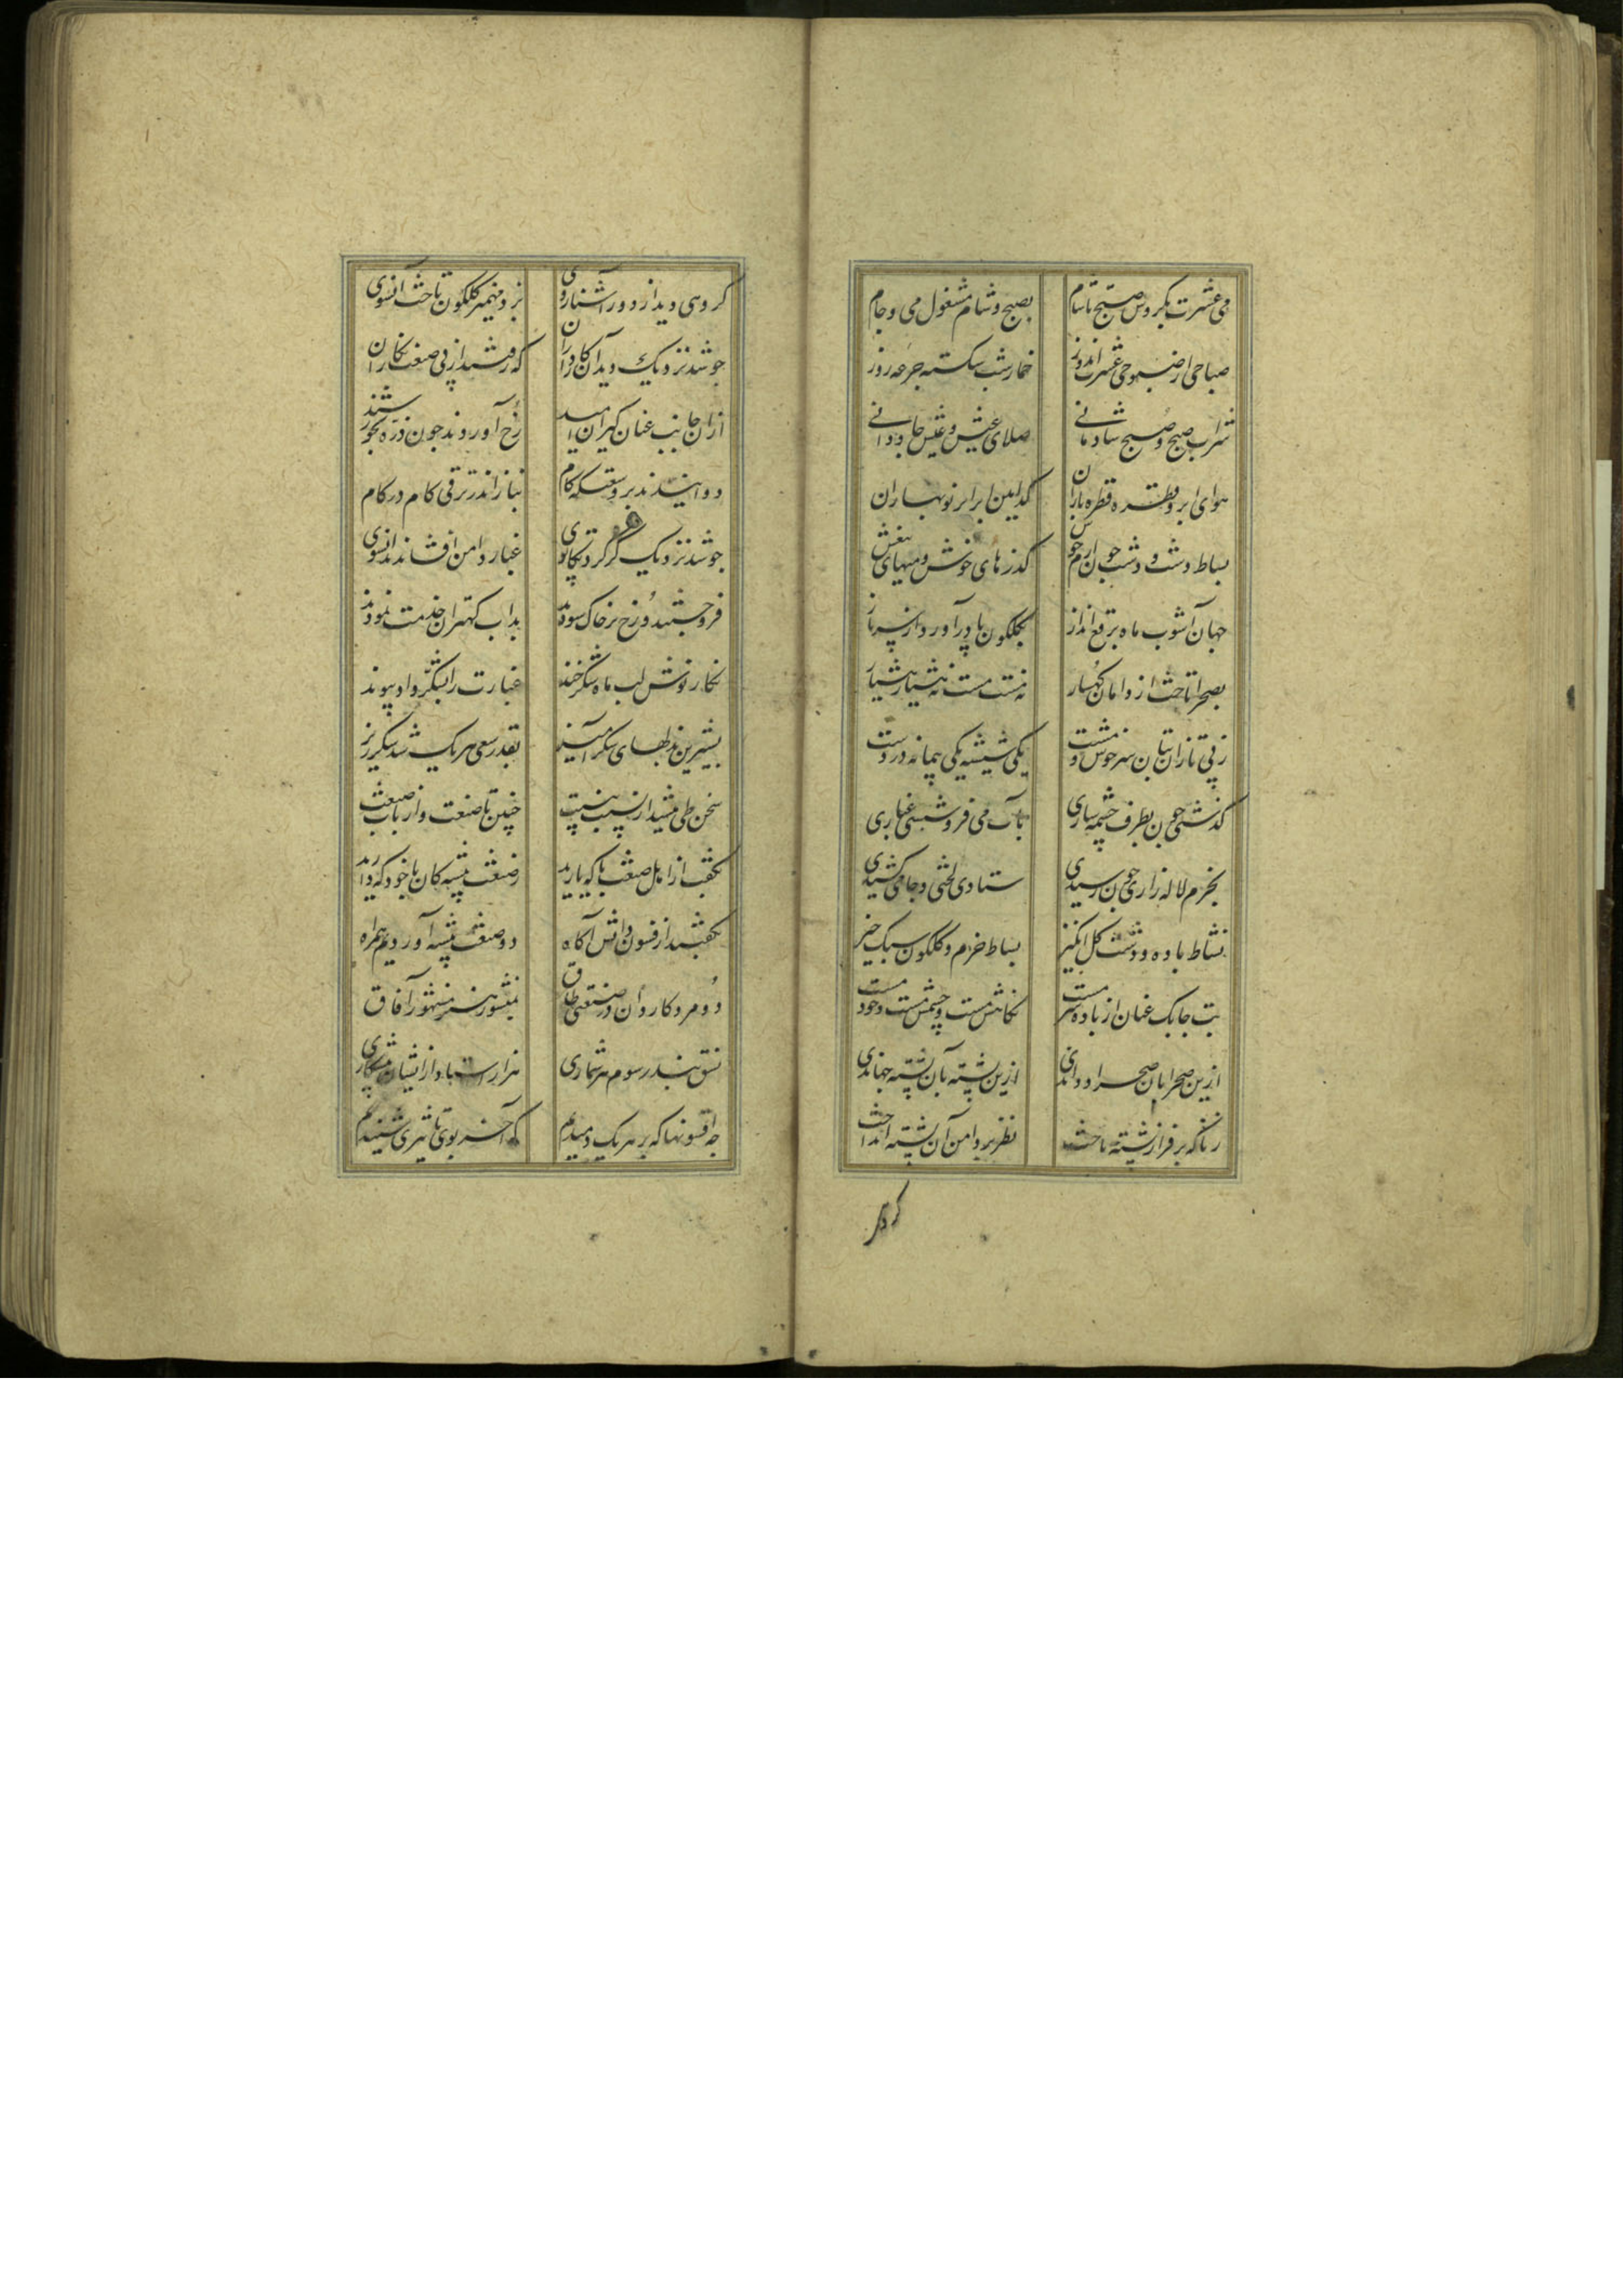 می عشرت بگردش صبح تا شام بصبح و شام مشغول می و جام
صباحی از صبوحی عشرت اندوز خمار شب شکسته جرعه روز
شراب صبح و صبح شادمانی صلای عیش و عیش جاودانی
هوای ابر و قطره قطره باران کدامین ابر ابر نوبهاران
بساط دشت و دشت چون ارم خوش کذرهای خوش و میهای بیغش
جهان آشوب ماه برقع انداز بکلکون پا درآورد از سر ناز
بصحرا تاخت از دامان کهسار نه مست مست نه هشیار هشیار
ز پی تازان بتان سرخوش و مست یکی شیشه یکی پیمانه در دست
کذشتی چون بطرف چشمه ساری بآب می فرو شستی غباری
بخرم لاله زاری چون رسیدی ستادی لختی و جامی کشیدی
نشاط باده و دشت کل انکیز بساط خرم و کلکون سبک خیز
بت چابک عنان از باده سرمست نکاهش مست و چشمش مست و خود مست
ازین صحرا بان صحرا دواندی ازین پشته بآن پشته جهاندی
زناکه بر فراز پشته تاخت نظر بر دامن آن پشته انداخت
کروهی
کروهی دید از دور آشناروی بر و مهمیز کلکون تاخت آنسوی
چو شد نزدیک دید آن کاردانرا که رفتند از پی صنعت نکاران
از ان جانب عنان کیران امید رخ آوردند چون ذره بخورشید
دوانیدند بر وسعتکه کام بناز اندر ترقی کام در کام
چو شد نزدیک کز کرد تکاپوی غبار دامن افشانند انسوی
فرو جستند و رخ بر خاک سودند بداب کهتران خدمت نمودند
نکار نوش لب ماه شکرخند عبارت را بشکر داد پیوند
بشیرین بذلهای شکرآمیز بقدر سعی هر یک شد شکرریز
سخن طی میشد از نسبت بنسبت چنین تا صنعت و ارباب صنعت
بکفت از اهل صنعت با که یارید ز صنعت پیشه کان با خود که دارید
بکفتند از فسون دانش آکاه دو صنعت پیشه آوردیم همراه
دو مرد کاردان در صنعتی طاق بمنشور هنر مشهور آفاق
نسق بند رسوم هر شماری هزار استاد از ایشان پیشکاری
چه افسونها که بر هر یک دمیدیم که آخر بوی تاثیری شنیدیم